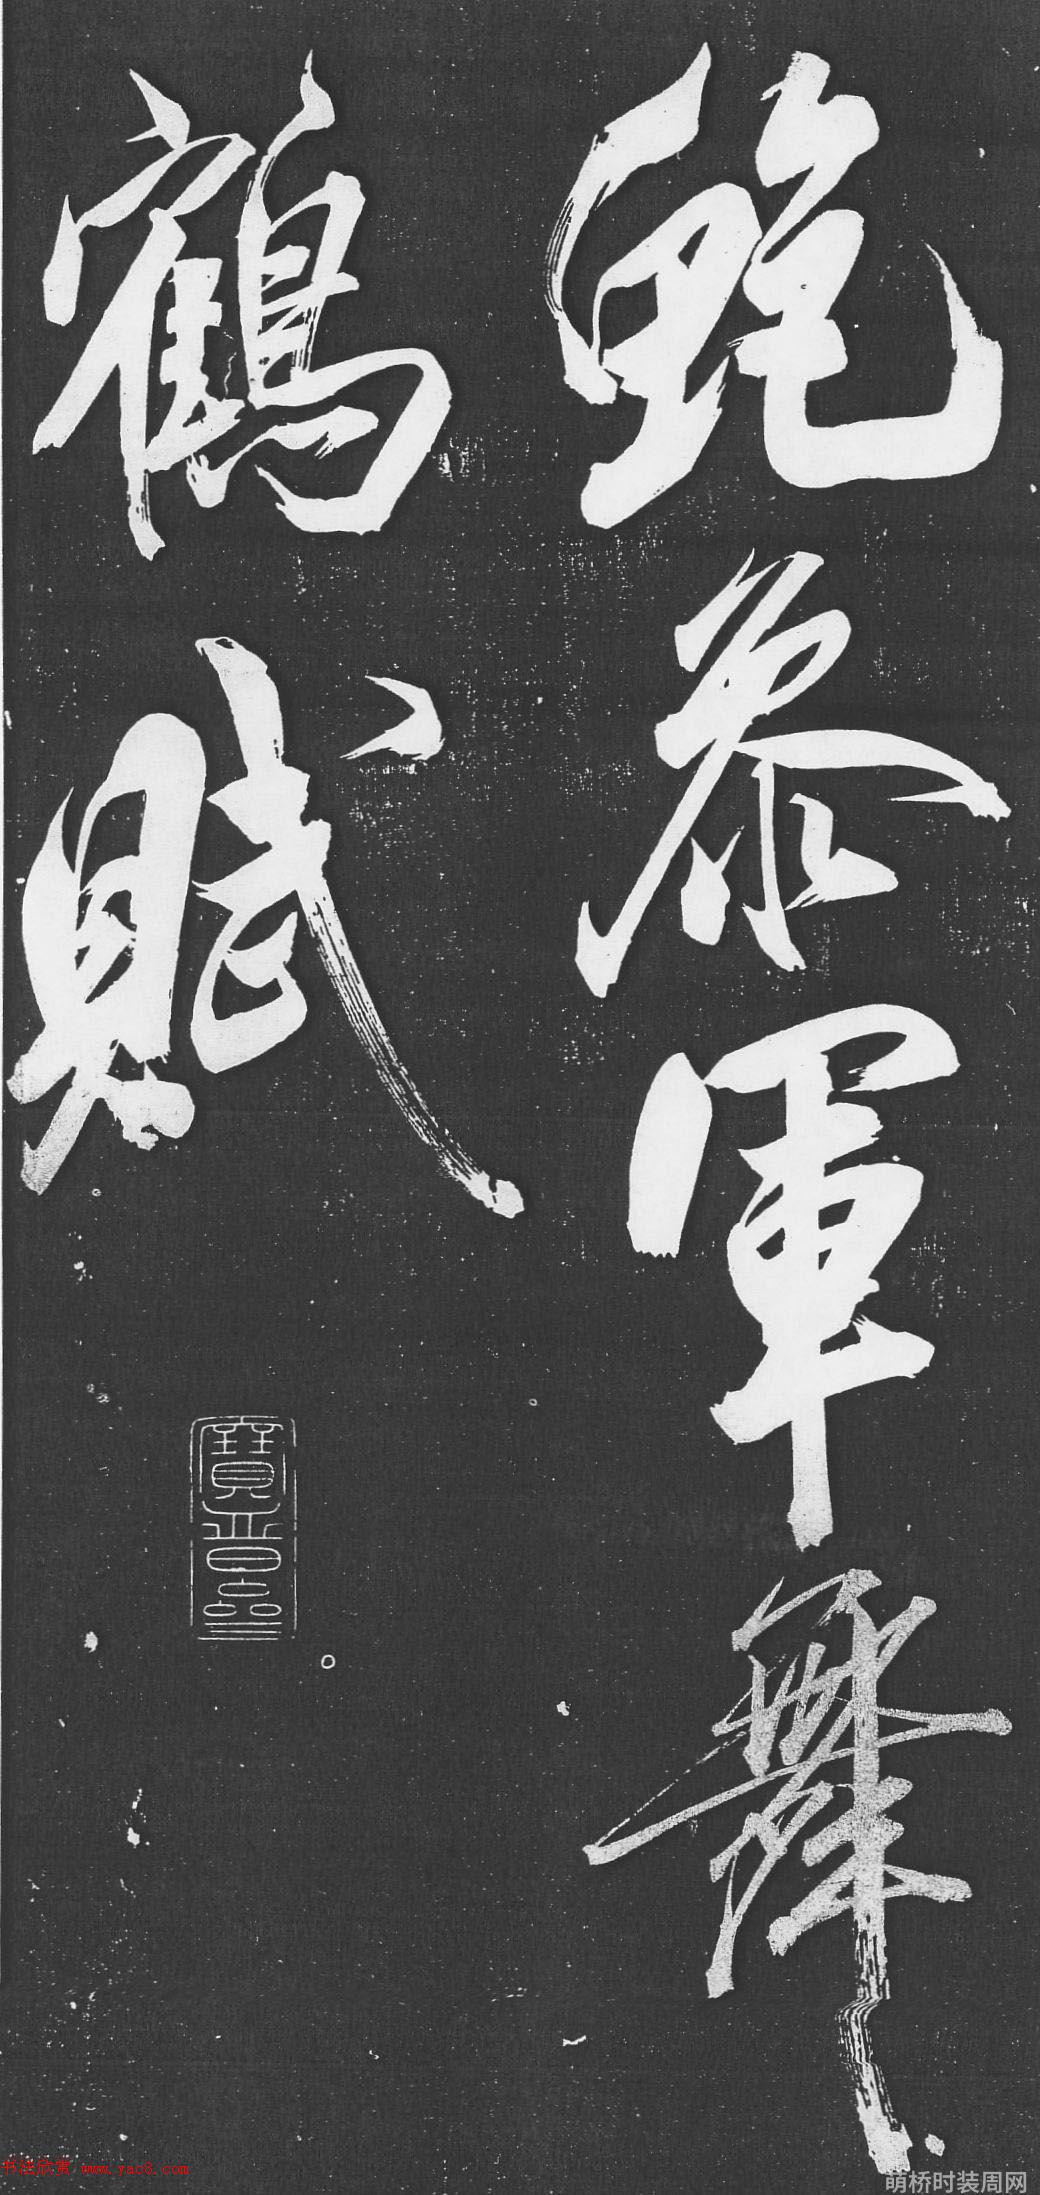 鮑参軍舞
鶴賦
寶晉齋
书法欣赏 www.yac8.com
萌桥时装周网